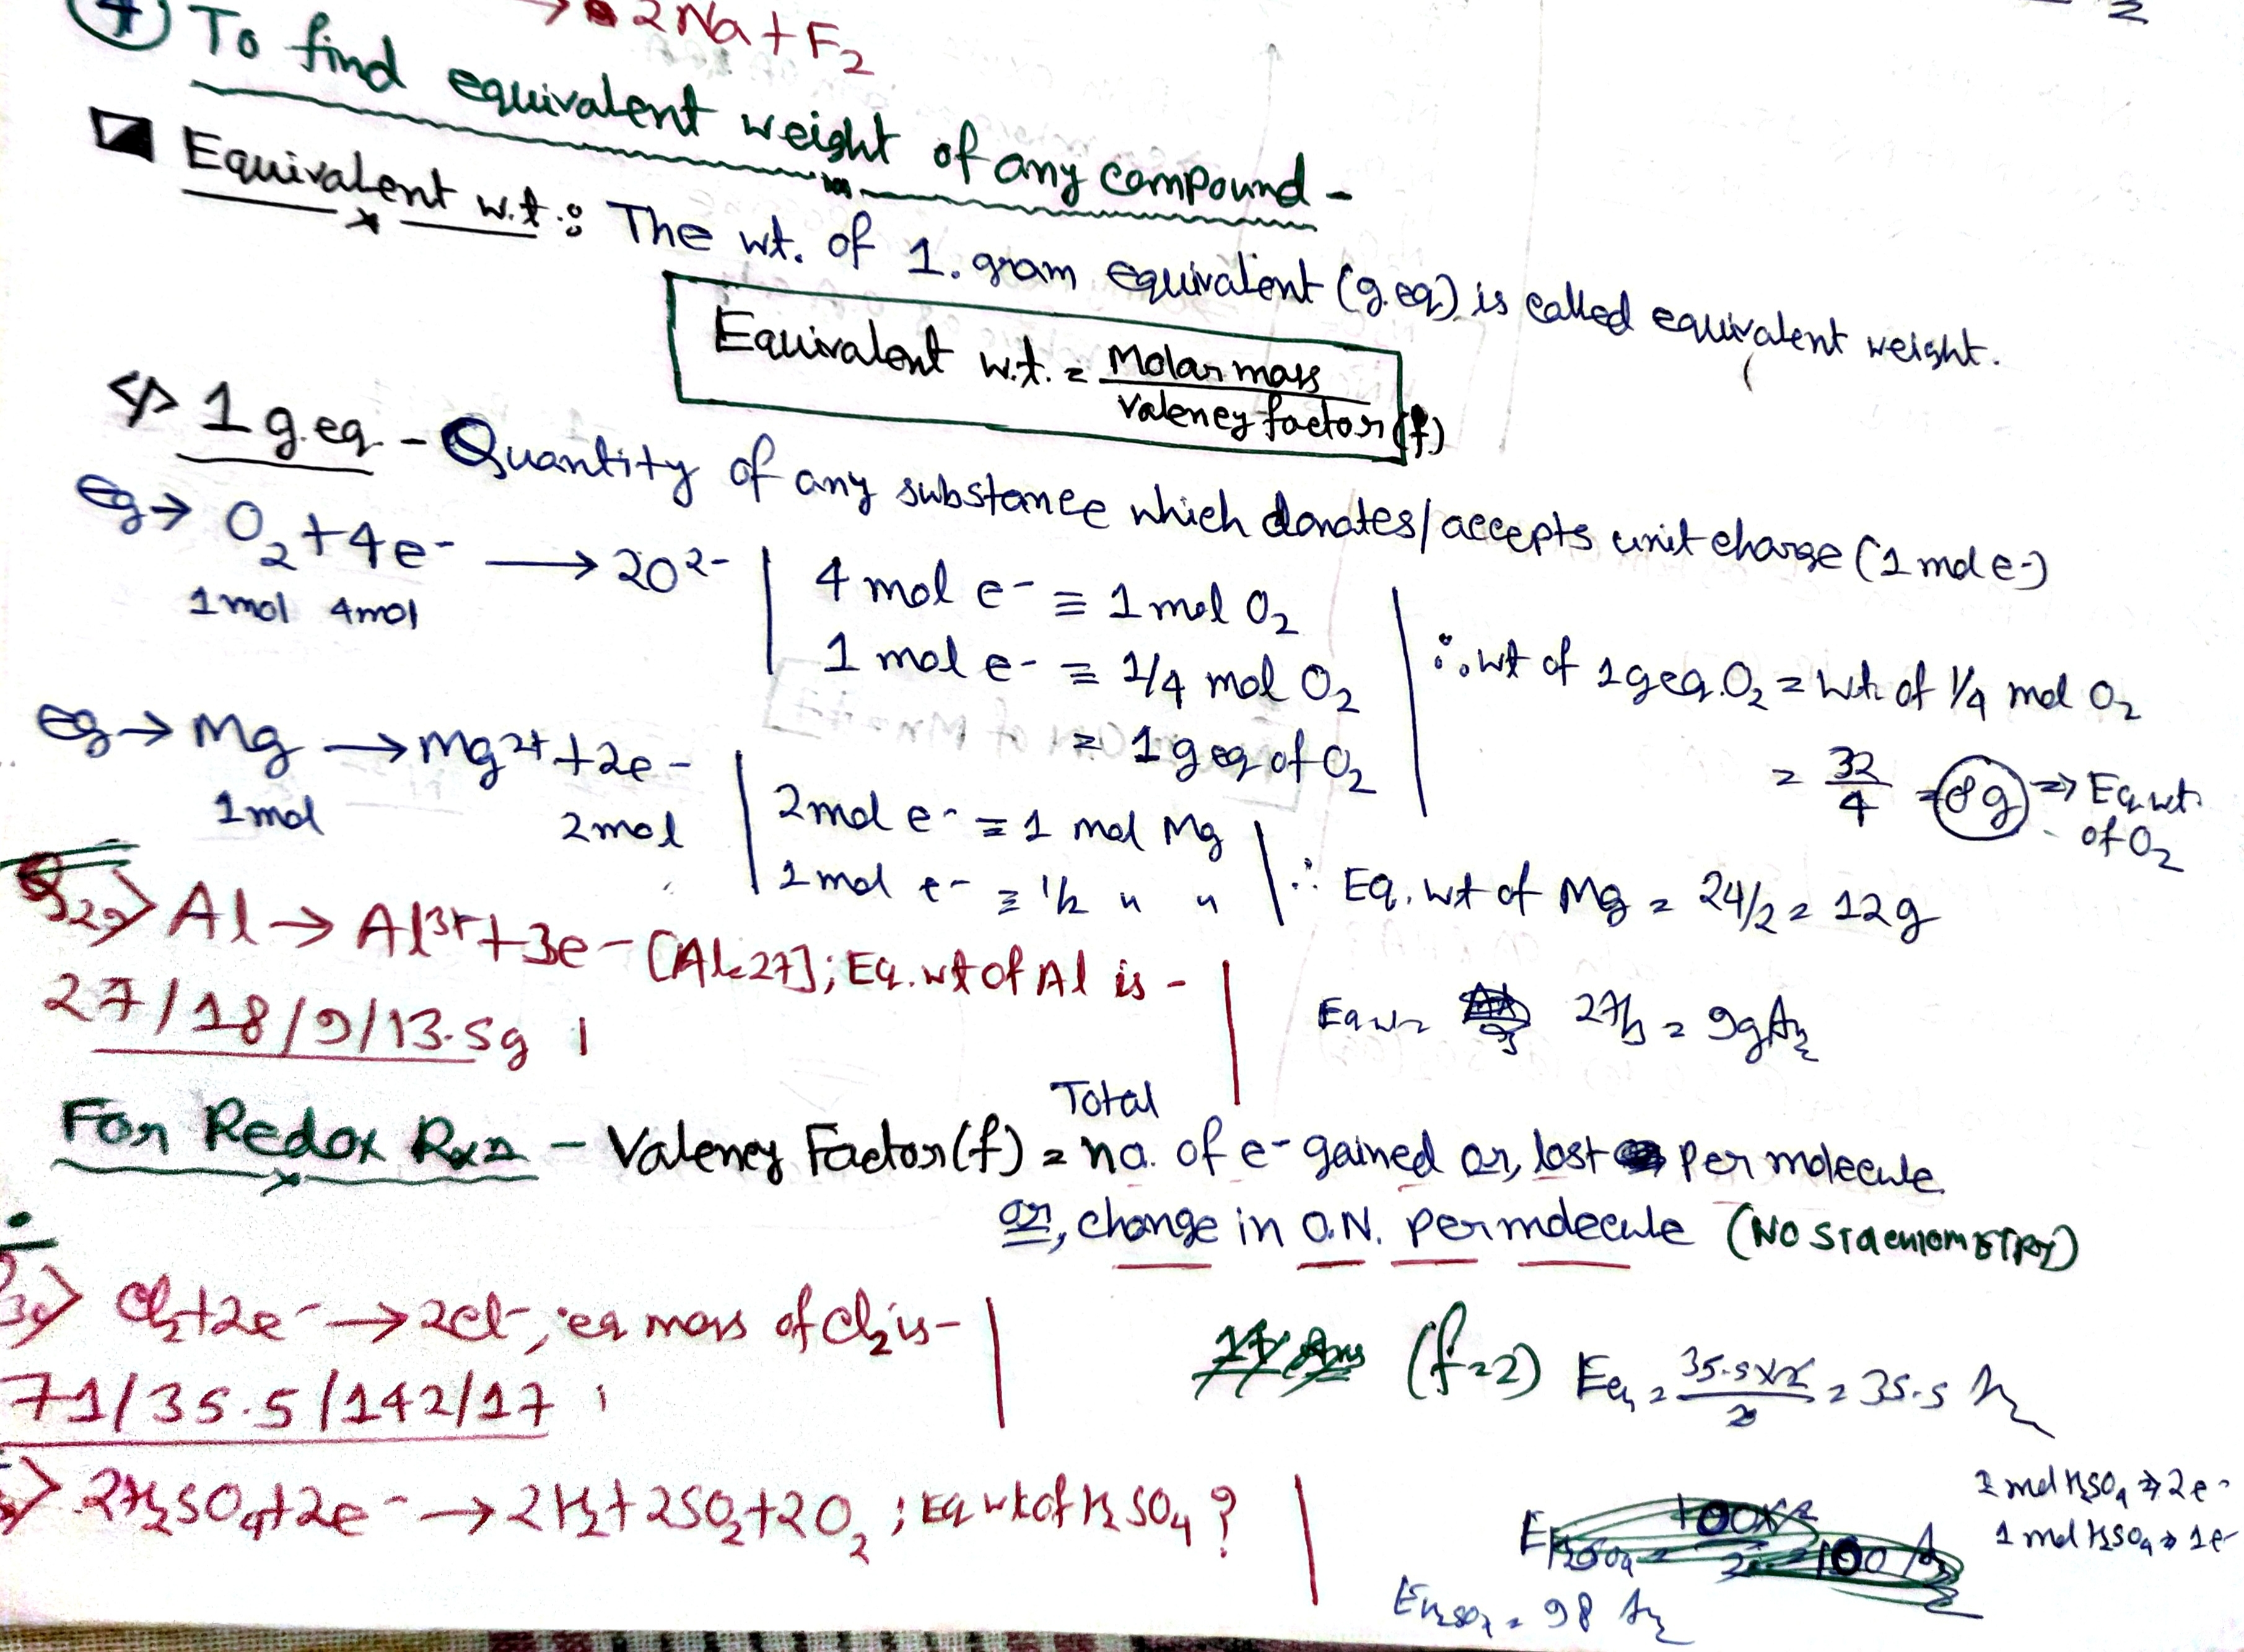 → 2Na + F₂
To find equivalent weight of any compound -
Equivalent w.t. : The wt. of 1. gram equivalent (g.eq) is called equivalent weight.
Equivalent w.t. = Molar mass / Valency factor (f)
1 g.eq - Quantity of any substance which donates/accepts unit charge (1 mol e-)
eg → O₂ + 4e⁻ → 2O²⁻
1mol 4mol
4 mol e⁻ ≡ 1 mol O₂
1 mol e⁻ ≡ 1/4 mol O₂
= 1 g eq of O₂
∴ wt of 1geq. O₂ = wt. of 1/4 mol O₂
= 32/4 = 8g ⇒ Eq. wt. of O₂
eg → Mg → Mg²⁺ + 2e⁻
1mol 2mol
2mol e⁻ ≡ 1 mol Mg
1 mol e⁻ ≡ 1/2 " "
∴ Eq. wt of Mg = 24/2 = 12g
Al → Al³⁺ + 3e⁻ [Al=27]; Eq. wt of Al is -
27/18/9/13.5g
Eq w = 27/3 = 9g
For Redox Rxn - Valency Factor (f) = Total no. of e⁻ gained or, lost per molecule
or, change in O.N. per molecule (NO STOCHIOMETRY)
Cl₂ + 2e⁻ → 2Cl⁻, eq mass of Cl₂ is -
71/35.5/142/17
(f=2) Eq = 35.5×2/2 = 35.5
2H₂SO₄ + 2e⁻ → 2H₂ + 2SO₂ + 2O₂ ; Eq wt of H₂SO₄ ?
2 mol H₂SO₄ → 2e⁻
1 mol H₂SO₄ → 1e⁻
E H₂SO₄ = 98